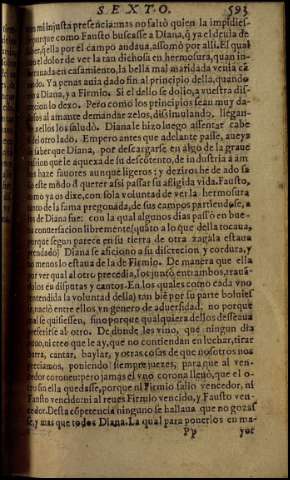 SEXTO. 593
con mi injusta presencia: mas no faltò quien la impidies-
porque como Fausto buscasse a Diana, q̃ ya el deuia de
saber, q̃ ella por el campo andaua, assomò por alli. El qual
con el dolor de ver la tan dichosa en hermosura, quan in-
en casamiento, la bella mal maridada venia cã
do. Ya penas auia dado fin al principio della, quando
a Diana, y a Firmio. Si el dello se dolio, a vuestra dis-
cion lo dexo. Però como los principios sean muy da-
sos al amante demandar zelos, dissimulando, llegan-
a ellos los saludò. Diana le hizo luego assentar cabe
del otro lado. Empero antes que adelante passe, aueys
saber que Diana, por descargarse en algo de la graue
que le aquexa de su descõtento, de industria a am
los haze fauores aunque ligeros: y dezir os he de aò sa
este mòdo d̃ querer assi passar su afligida vida. Fausto,
como ya os dixe, con sola voluntad de ver la hermosura
de la fama pregonada, de sus campos partiendose, a
de Diana fue: con la qual algunos dias passò en bue-
conuersacion libremente (quãto a lo que della tocaua,
porque segun parece en su tierra de otra zagala estaua
Diana se aficiono a su discrecion y cordura, y
no menos lo estaua la de Firmio. De manera que ella
por ver qual al otro precedia, los juntò entrambos, traua-
dolos en disputas y cantos. En los quales como cada vno
entendida la voluntad della) tan biẽ por su parte boluies-
nacio entre ellos vn genero de aduersidad. no porque
mal se quisiessen, sino porque qualquiera dellos desseaua
preferirse al otro. De donde les vino, que ningun dia
ni creo que le ay, que no contiendan en luchar, tirar
barra, cantar, baylar, y otras cosas de que nosotros nos
preciamos, poniendo siempre juezes, para que al ven-
cedor coronen: pero jamas el vno corona lleuò, que el o-
sin ella quedasse, porque ni Firmio salio vencedor, ni
Fausto vencido: ni al reues Firmio vencido, y Fausto ven-
cedor. Desta cõpetencia ninguno se hallaua que no gozas
se, y mas que todos Diana. La qual para ponerlos en ma-
Pp yor